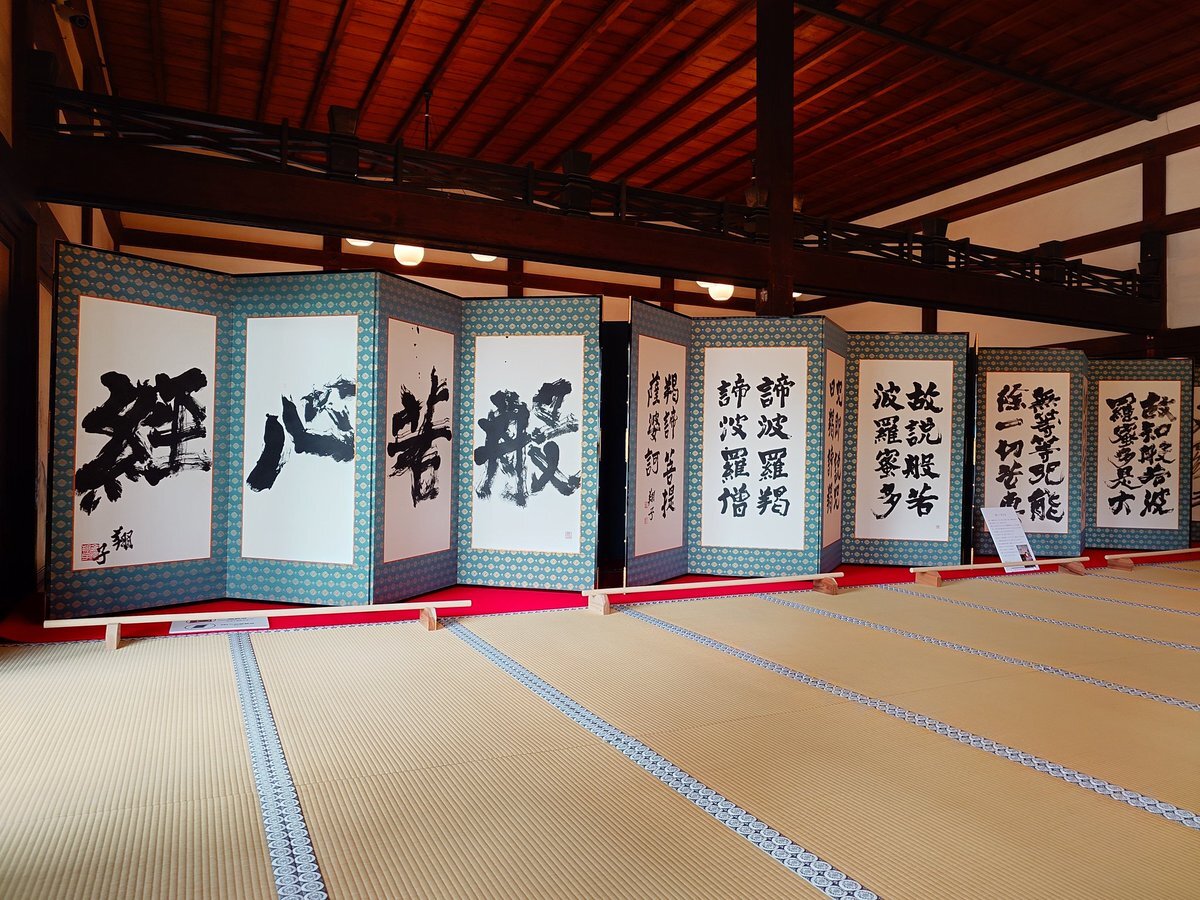 故知般若波
羅蜜多是大
無等等呪能
除一切苦真
故説般若
波羅蜜多
諦波羅羯
諦波羅僧
羯諦菩提
薩婆訶
翔子
般
若
心
経
翔子